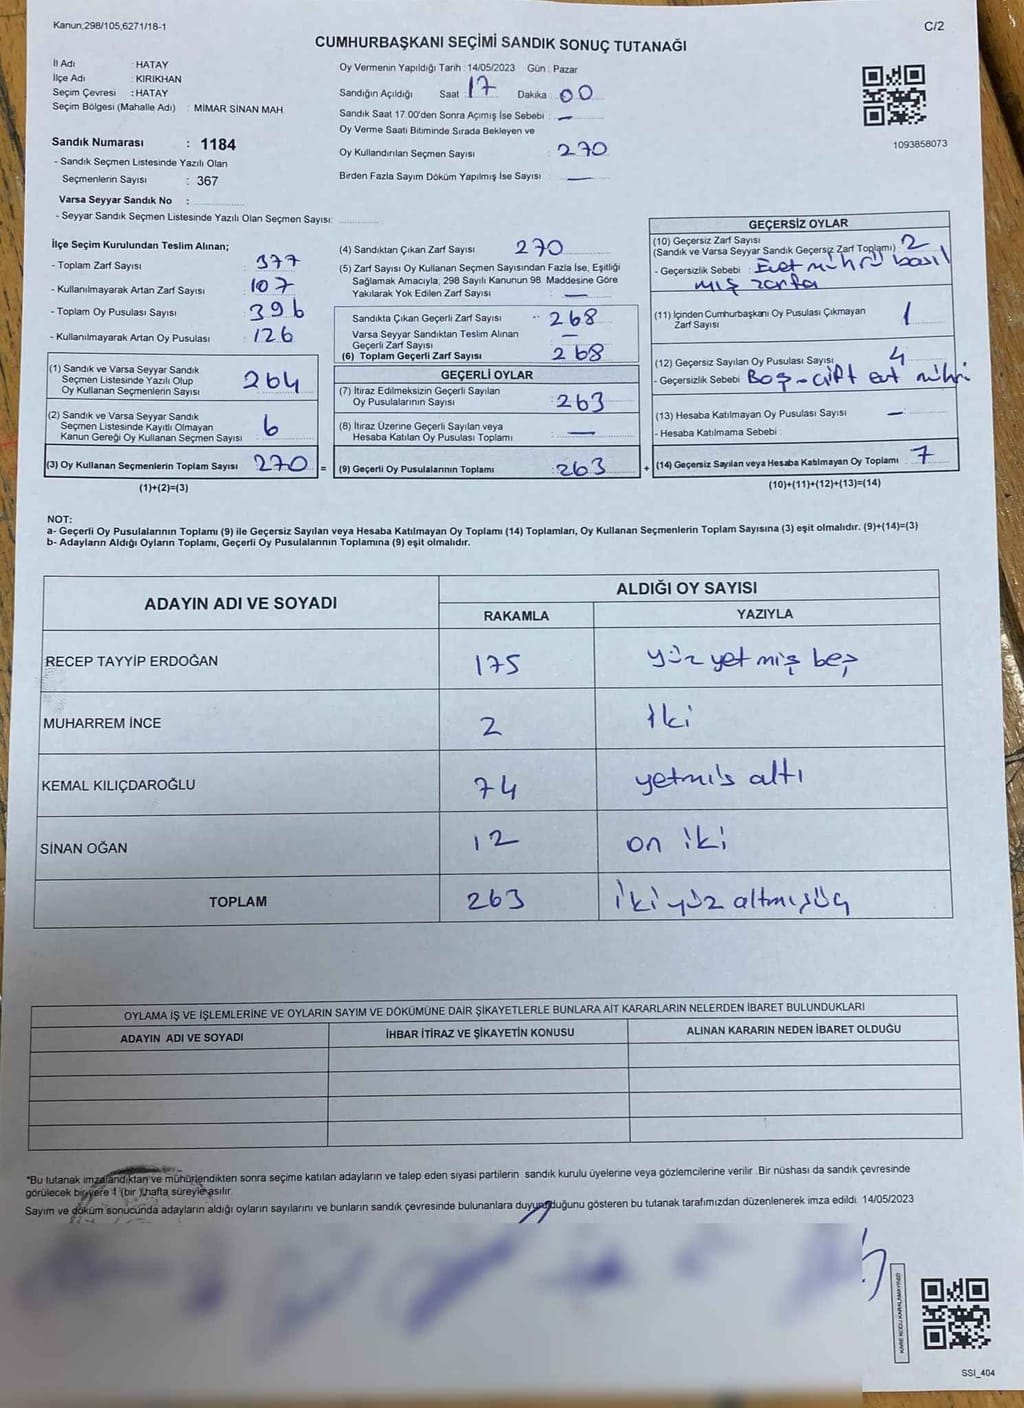 Kanun;298/105,6271/18-1
C/2
CUMHURBAŞKANI SEÇİMİ SANDIK SONUÇ TUTANAĞI
İl Adı : HATAY
İlçe Adı : KIRIKHAN
Seçim Çevresi : HATAY
Seçim Bölgesi (Mahalle Adı) : MİMAR SİNAN MAH
Sandık Numarası : 1184
- Sandık Seçmen Listesinde Yazılı Olan
Seçmenlerin Sayısı : 367
Varsa Seyyar Sandık No :
- Seyyar Sandık Seçmen Listesinde Yazılı Olan Seçmen Sayısı:
Oy Vermenin Yapıldığı Tarih : 14/05/2023 Gün : Pazar
Sandığın Açıldığı Saat : 17 Dakika : 00
Sandık Saat 17.00'den Sonra Açımış İse Sebebi : —
Oy Verme Saati Bitiminde Sırada Bekleyen ve
Oy Kullandırılan Seçmen Sayısı : 270
Birden Fazla Sayım Döküm Yapılmış İse Sayısı : —
1093858073
İlçe Seçim Kurulundan Teslim Alınan;
- Toplam Zarf Sayısı : 377
- Kullanılmayarak Artan Zarf Sayısı : 107
- Toplam Oy Pusulası Sayısı : 396
- Kullanılmayarak Artan Oy Pusulası : 126
(1) Sandık ve Varsa Seyyar Sandık
Seçmen Listesinde Yazılı Olup
Oy Kullanan Seçmenlerin Sayısı : 264
(2) Sandık ve Varsa Seyyar Sandık
Seçmen Listesinde Kayıtlı Olmayan
Kanun Gereği Oy Kullanan Seçmen Sayısı : 6
(3) Oy Kullanan Seçmenlerin Toplam Sayısı : 270 =
(1)+(2)=(3)
(4) Sandıktan Çıkan Zarf Sayısı : 270
(5) Zarf Sayısı Oy Kullanan Seçmen Sayısından Fazla İse, Eşitliği
Sağlamak Amacıyla, 298 Sayılı Kanunun 98. Maddesine Göre
Yakılarak Yok Edilen Zarf Sayısı : —
Sandıkta Çıkan Geçerli Zarf Sayısı : 268
Varsa Seyyar Sandıktan Teslim Alınan
Geçerli Zarf Sayısı : —
(6) Toplam Geçerli Zarf Sayısı : 268
GEÇERLİ OYLAR
(7) İtiraz Edilmeksizin Geçerli Sayılan
Oy Pusulalarının Sayısı : 263
(8) İtiraz Üzerine Geçerli Sayılan veya
Hesaba Katılan Oy Pusulası Toplamı : —
(9) Geçerli Oy Pusulalarının Toplamı : 263 +
GEÇERSİZ OYLAR
(10) Geçersiz Zarf Sayısı
(Sandık ve Varsa Seyyar Sandık Geçersiz Zarf Toplamı) : 2
- Geçersizlik Sebebi : Evet mührü basıl
mış zarfa
(11) İçinden Cumhurbaşkanı Oy Pusulası Çıkmayan
Zarf Sayısı : 1
(12) Geçersiz Sayılan Oy Pusulası Sayısı : 4
- Geçersizlik Sebebi : Boş - çift evt mühri
(13) Hesaba Katılmayan Oy Pusulası Sayısı : —
- Hesaba Katılmama Sebebi :
(14) Geçersiz Sayılan veya Hesaba Katılmayan Oy Toplamı : 7
(10)+(11)+(12)+(13)=(14)
NOT:
a- Geçerli Oy Pusulalarının Toplamı (9) ile Geçersiz Sayılan veya Hesaba Katılmayan Oy Toplamı (14) Toplamları, Oy Kullanan Seçmenlerin Toplam Sayısına (3) eşit olmalıdır. (9)+(14)=(3)
b- Adayların Aldığı Oyların Toplamı, Geçerli Oy Pusulalarının Toplamına (9) eşit olmalıdır.
ADAYIN ADI VE SOYADI
ALDIĞI OY SAYISI
RAKAMLA YAZIYLA
RECEP TAYYİP ERDOĞAN 175 yüz yetmiş beş
MUHARREM İNCE 2 iki
KEMAL KILIÇDAROĞLU 74 yetmis altı
SİNAN OĞAN 12 on iki
TOPLAM 263 ikiyüz altmışüç
OYLAMA İŞ VE İŞLEMLERİNE VE OYLARIN SAYIM VE DÖKÜMÜNE DAİR ŞİKAYETLERLE BUNLARA AİT KARARLARIN NELERDEN İBARET BULUNDUKLARI
ADAYIN ADI VE SOYADI İHBAR İTİRAZ VE ŞİKAYETİN KONUSU ALINAN KARARIN NEDEN İBARET OLDUĞU
*Bu tutanak imzalandıktan ve mühürlendikten sonra seçime katılan adayların ve talep eden siyasi partilerin sandık kurulu üyelerine veya gözlemcilerine verilir. Bir nüshası da sandık çevresinde
görülecek bir yere 1 (bir ) hafta süreyle asılır.
Sayım ve döküm sonucunda adayların aldığı oyların sayılarını ve bunların sandık çevresinde bulunanlara duyurulduğunu gösteren bu tutanak tarafımızdan düzenlenerek imza edildi. 14/05/2023
KARE KODU KARALAMAYINIZ!
SSI_404